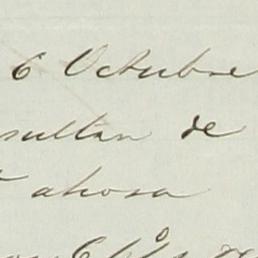 6 Octubre
sultan de
ahora